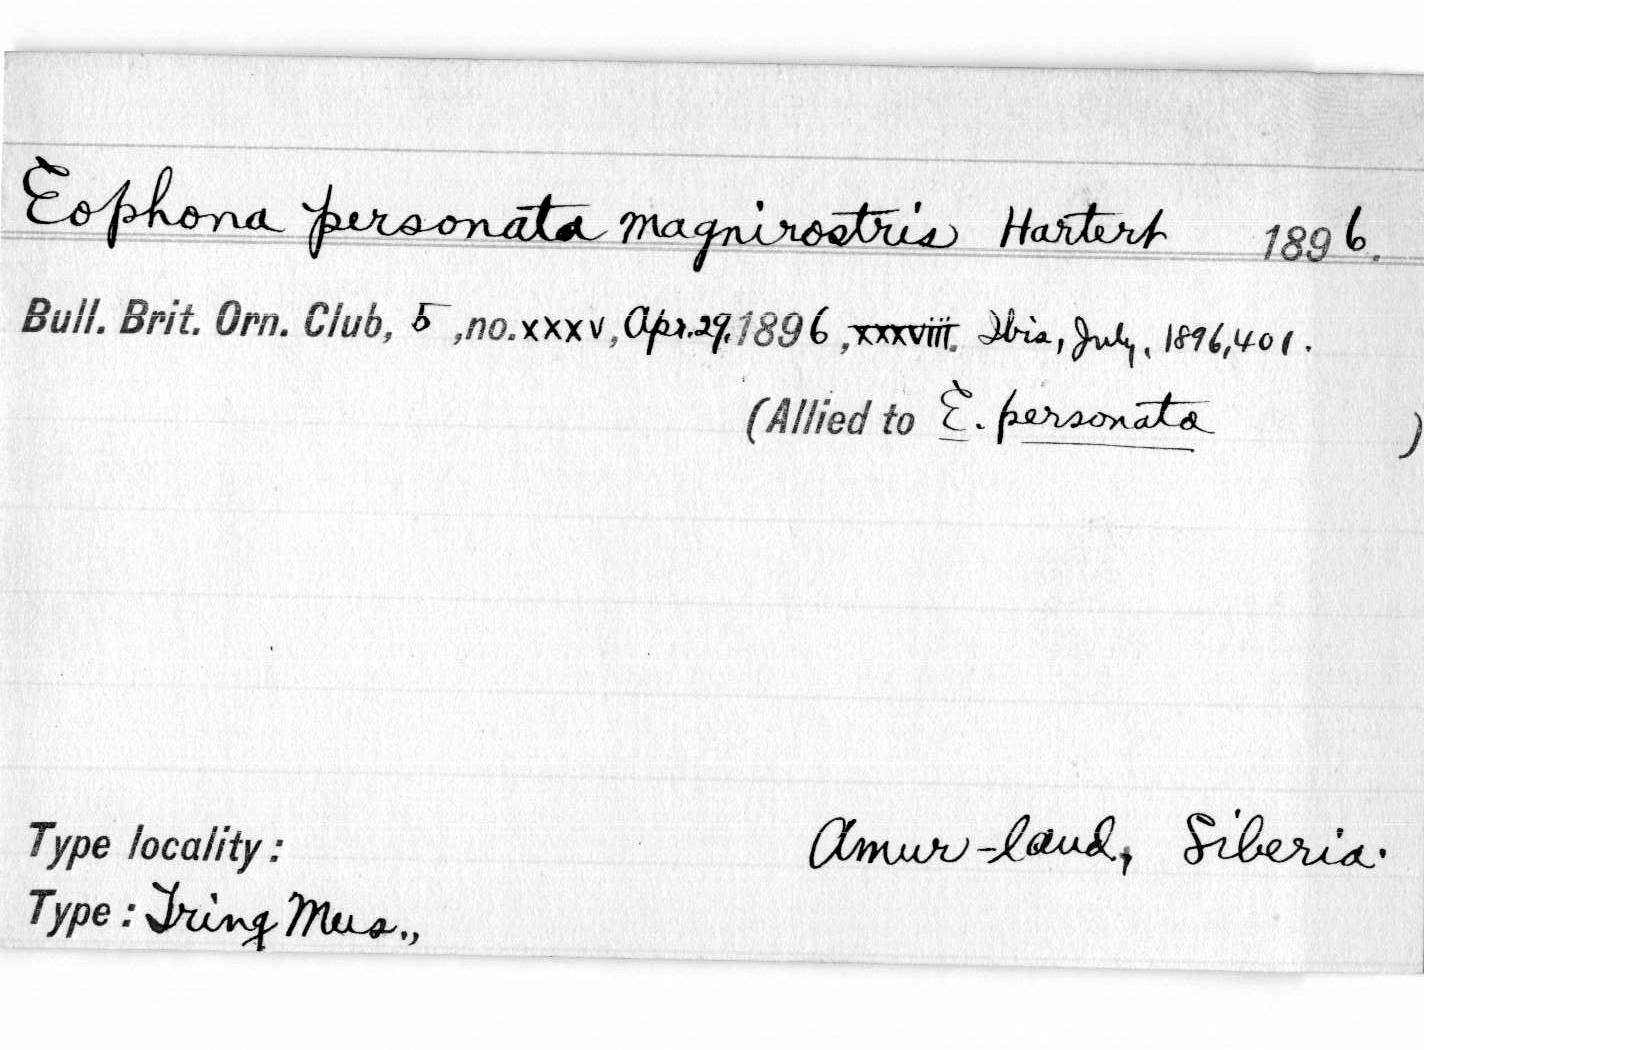 Eophona personata magnirostris Hartert 1896.
Bull. Brit. Orn. Club, 5, no. xxxv, Apr. 29, 1896, xxxviii. Ibis, July, 1896, 401.
(Allied to E. personata )
Type locality: Amur-land, Siberia.
Type: Tring Mus.,